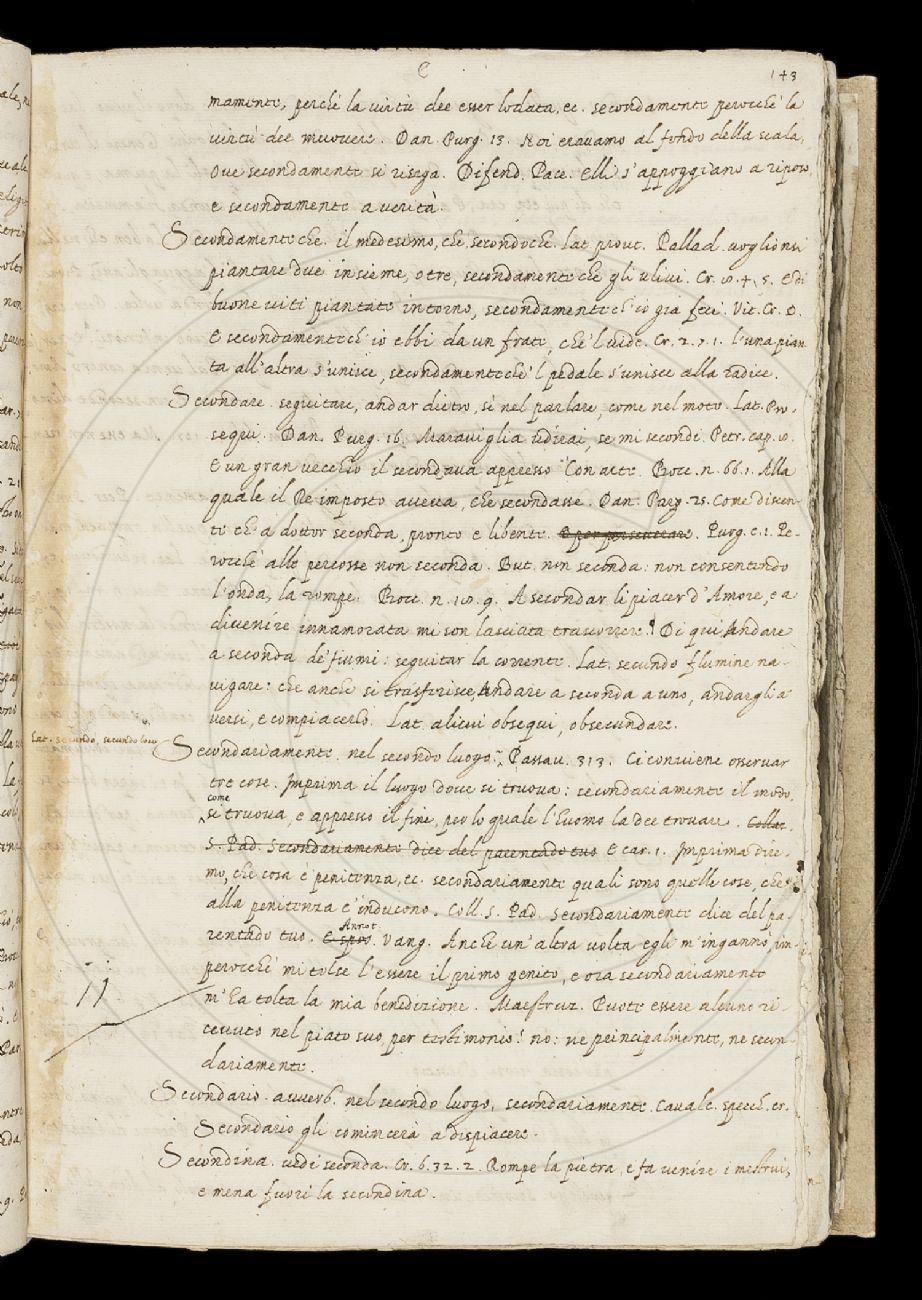 C
143
mamente, perchè la virtù dee esser lodata, ec. secondamente perocchè la
virtù dee muovere. Dan. Purg. 13. Noi eravamo al sommo della scala,
Ove secondamente si risega. Difend. Pace. Elli s'appoggiano a riposo,
e secondamente a verità.
Secondamente che. il medesimo, che secondoche. Lat. prout. Pallad. voglionsi
piantare due insieme, o tre, secondamente che gli ulivi. Cr. 10. 4. 5. E di
buone viti piantate intorno, secondamente ch' io già feci. Vit. Cr. D.
E secondamente ch' io ebbi da un frate, che 'l vide. Cr. 2. 7. 1. l'una pian
ta all'altra s'unisce, secondamente che 'l pedale s'unisce alla radice.
Secondare. seguitare, andar dietro, sì nel parlare, come nel moto. Lat. Pro-
sequi. Dan. Purg. 16. Maraviglia udirai, se mi secondi. Petr. cap. 10.
E un gran vecchio il secondava appresso Con arte. Bocc. n. 66. 1. Alla
quale il Re imposto aveva, che secondasse. Dan. Parg. 25. Come discen-
te ch' a dottor seconda, pronto e libente. Purg. c. 1. Pe-
rocchè alle percosse non seconda. But. non seconda: non consentendo
l'onda, la rompe. Bocc. n. 10. 9. A secondar li piacer d'Amore, e a
divenire innamorata mi son lasciata trascorrere. Di qui Andare
a seconda de' fiumi: seguitar la corrente. Lat. secundo flumine na-
vigare: che anche si trasferisce, Andare a seconda a uno, andargli a
versi, e compiacerlo. Lat. alicui obsequi, obsecundare.
Lat. secundo, secundo loco
Secondariamente. nel secondo luogo. Passav. 313. Ci conviene osservar
tre cose. Imprima il luogo dove si truova: secondariamente il modo,
come
si truova, e appresso il fine, per lo quale l'huomo la dee trovare. Collaz.
S. Pad. Secondariamente dice del parentado tuo E car. 1. Imprima dire-
mo, che cosa è penitenza, ec. secondariamente quali sono quelle cose, che
alla penitenza c'inducono. Coll. S. Pad. Secondariamente dice del pa-
Annot.
rentado tuo. E spos. Vang. Anche un'altra volta egli m'ingannò, im-
perocchè mi tolse l'essere il primo genito, e ora secondariamente
m'ha tolta la mia benedizione. Maestruz. Puote essere alcuno ri-
cevuto nel piato suo per testimonio? no: ne principalmente, ne secon-
dariamente.
Secondario. avverb. nel secondo luogo, secondariamente. Cavalc. specch. cr.
Secondario gli comincerà a dispiacere.
Secondina. vedi seconda. Cr. 6. 32. 2. Rompe la pietra, e fa venire i mestrui,
e mena fuori la secondina.